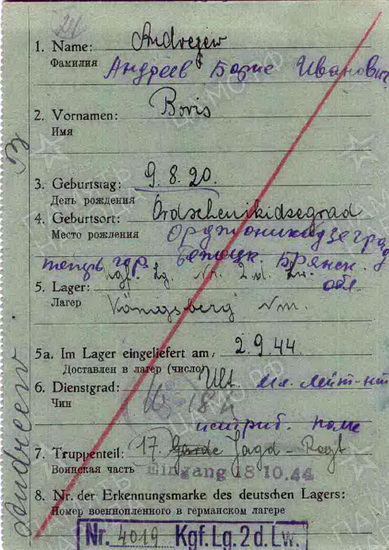 1. Name: Andrejew
Фамилия Андреев Борис Иванович
2. Vornamen: Boris
Имя
3. Geburtstag: 9.8.20.
День рождения
4. Geburtsort: Ordschenikidsegrad
Место рождения Орджоникидзеград
теперь гор. Бежецк. Брянск. обл
5. Lager: Kgf. Lg. Nr. 2 d. Lw.
Лагер Königsberg Nm.
5a. Im Lager eingeliefert am, 2.9.44
Доставлен в лагер (число)
6. Dienstgrad: Ult. мл. лейт-нт
Чин
истриб. полк
7. Truppenteil: 17. Garde Jagd-Regt
Воинская часть Eingang 18.10.44
8. Nr. der Erkennungsmarke des deutschen Lagers:
Номер военнопленного в германском лагере
Nr. 4019 Kgf.Lg.2 d.Lw.
Andreew B